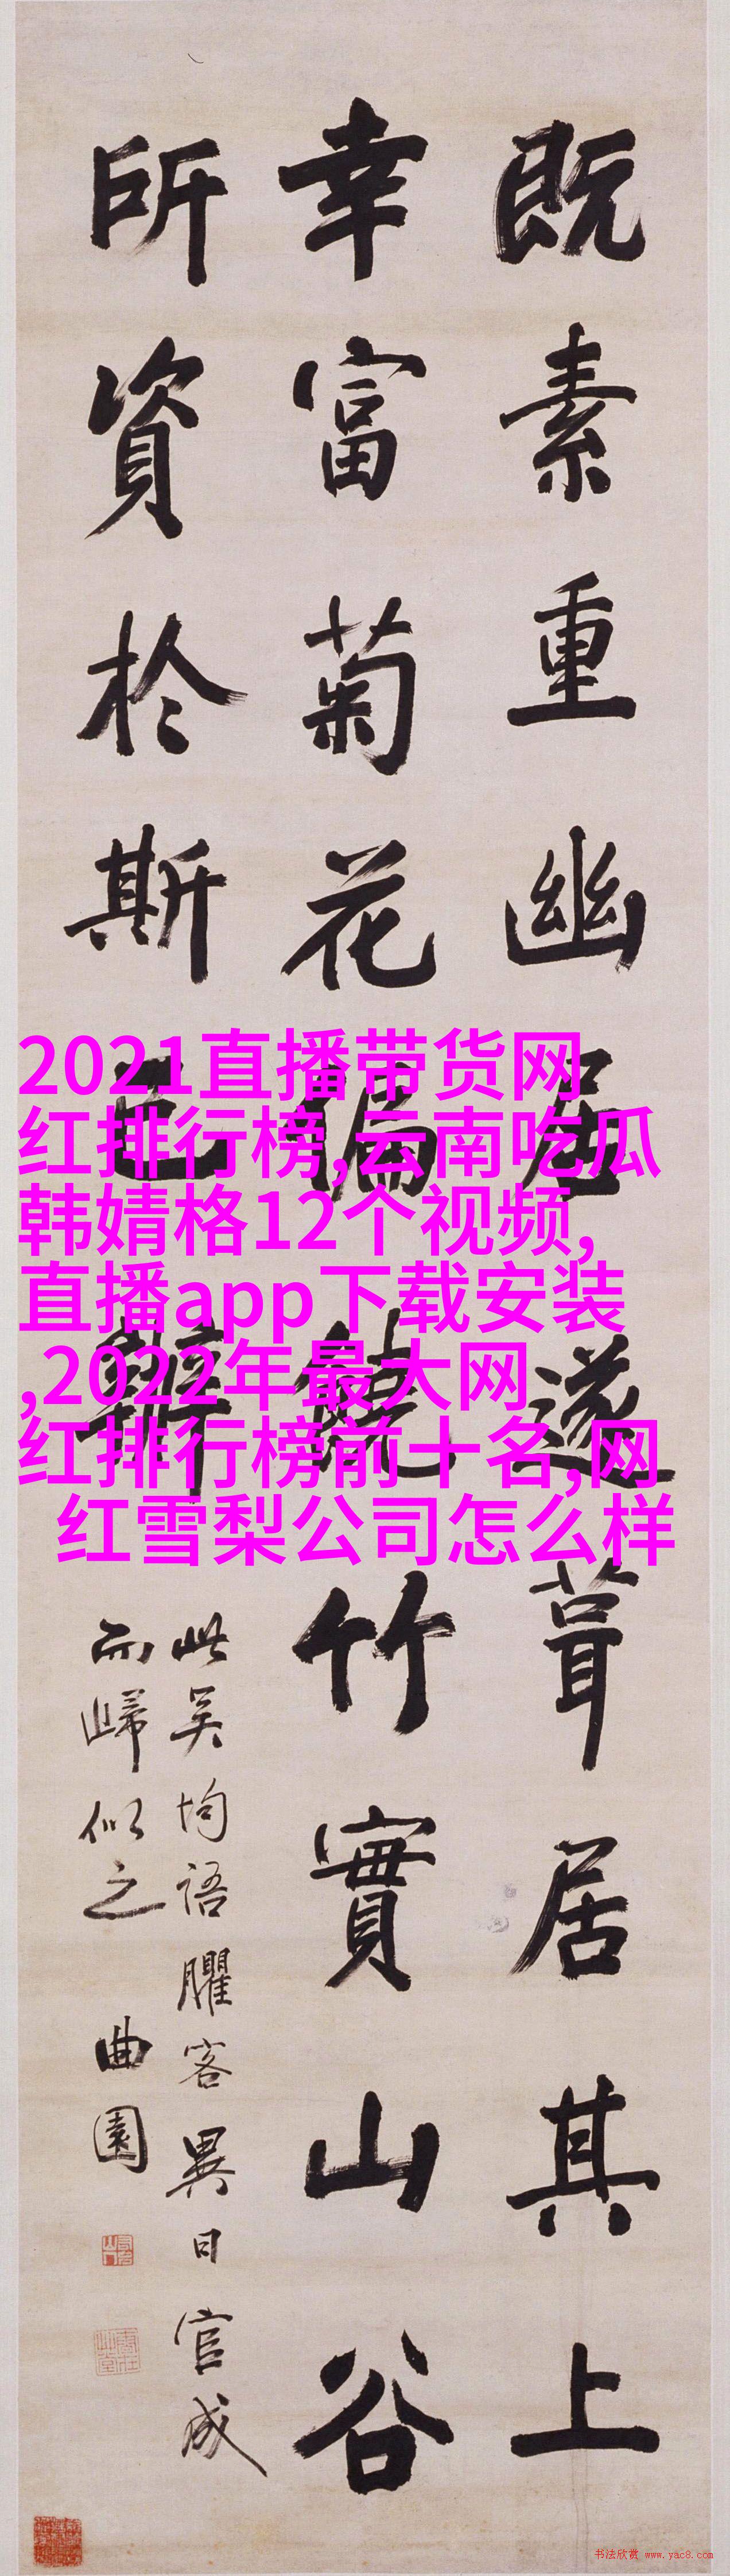 既素重幽居遂葺居其上
幸富菊花偏饒竹實山谷
所資於斯已辦
此吴均語臞客異日官成
而歸似之 曲園
2021直播带货网
红排行榜,云南吃瓜
韩婧格12个视频,
直播app下载安装
,2022年最大网
红排行榜前十名,网
红雪梨公司怎么样
书法欣赏 www.yac8.com